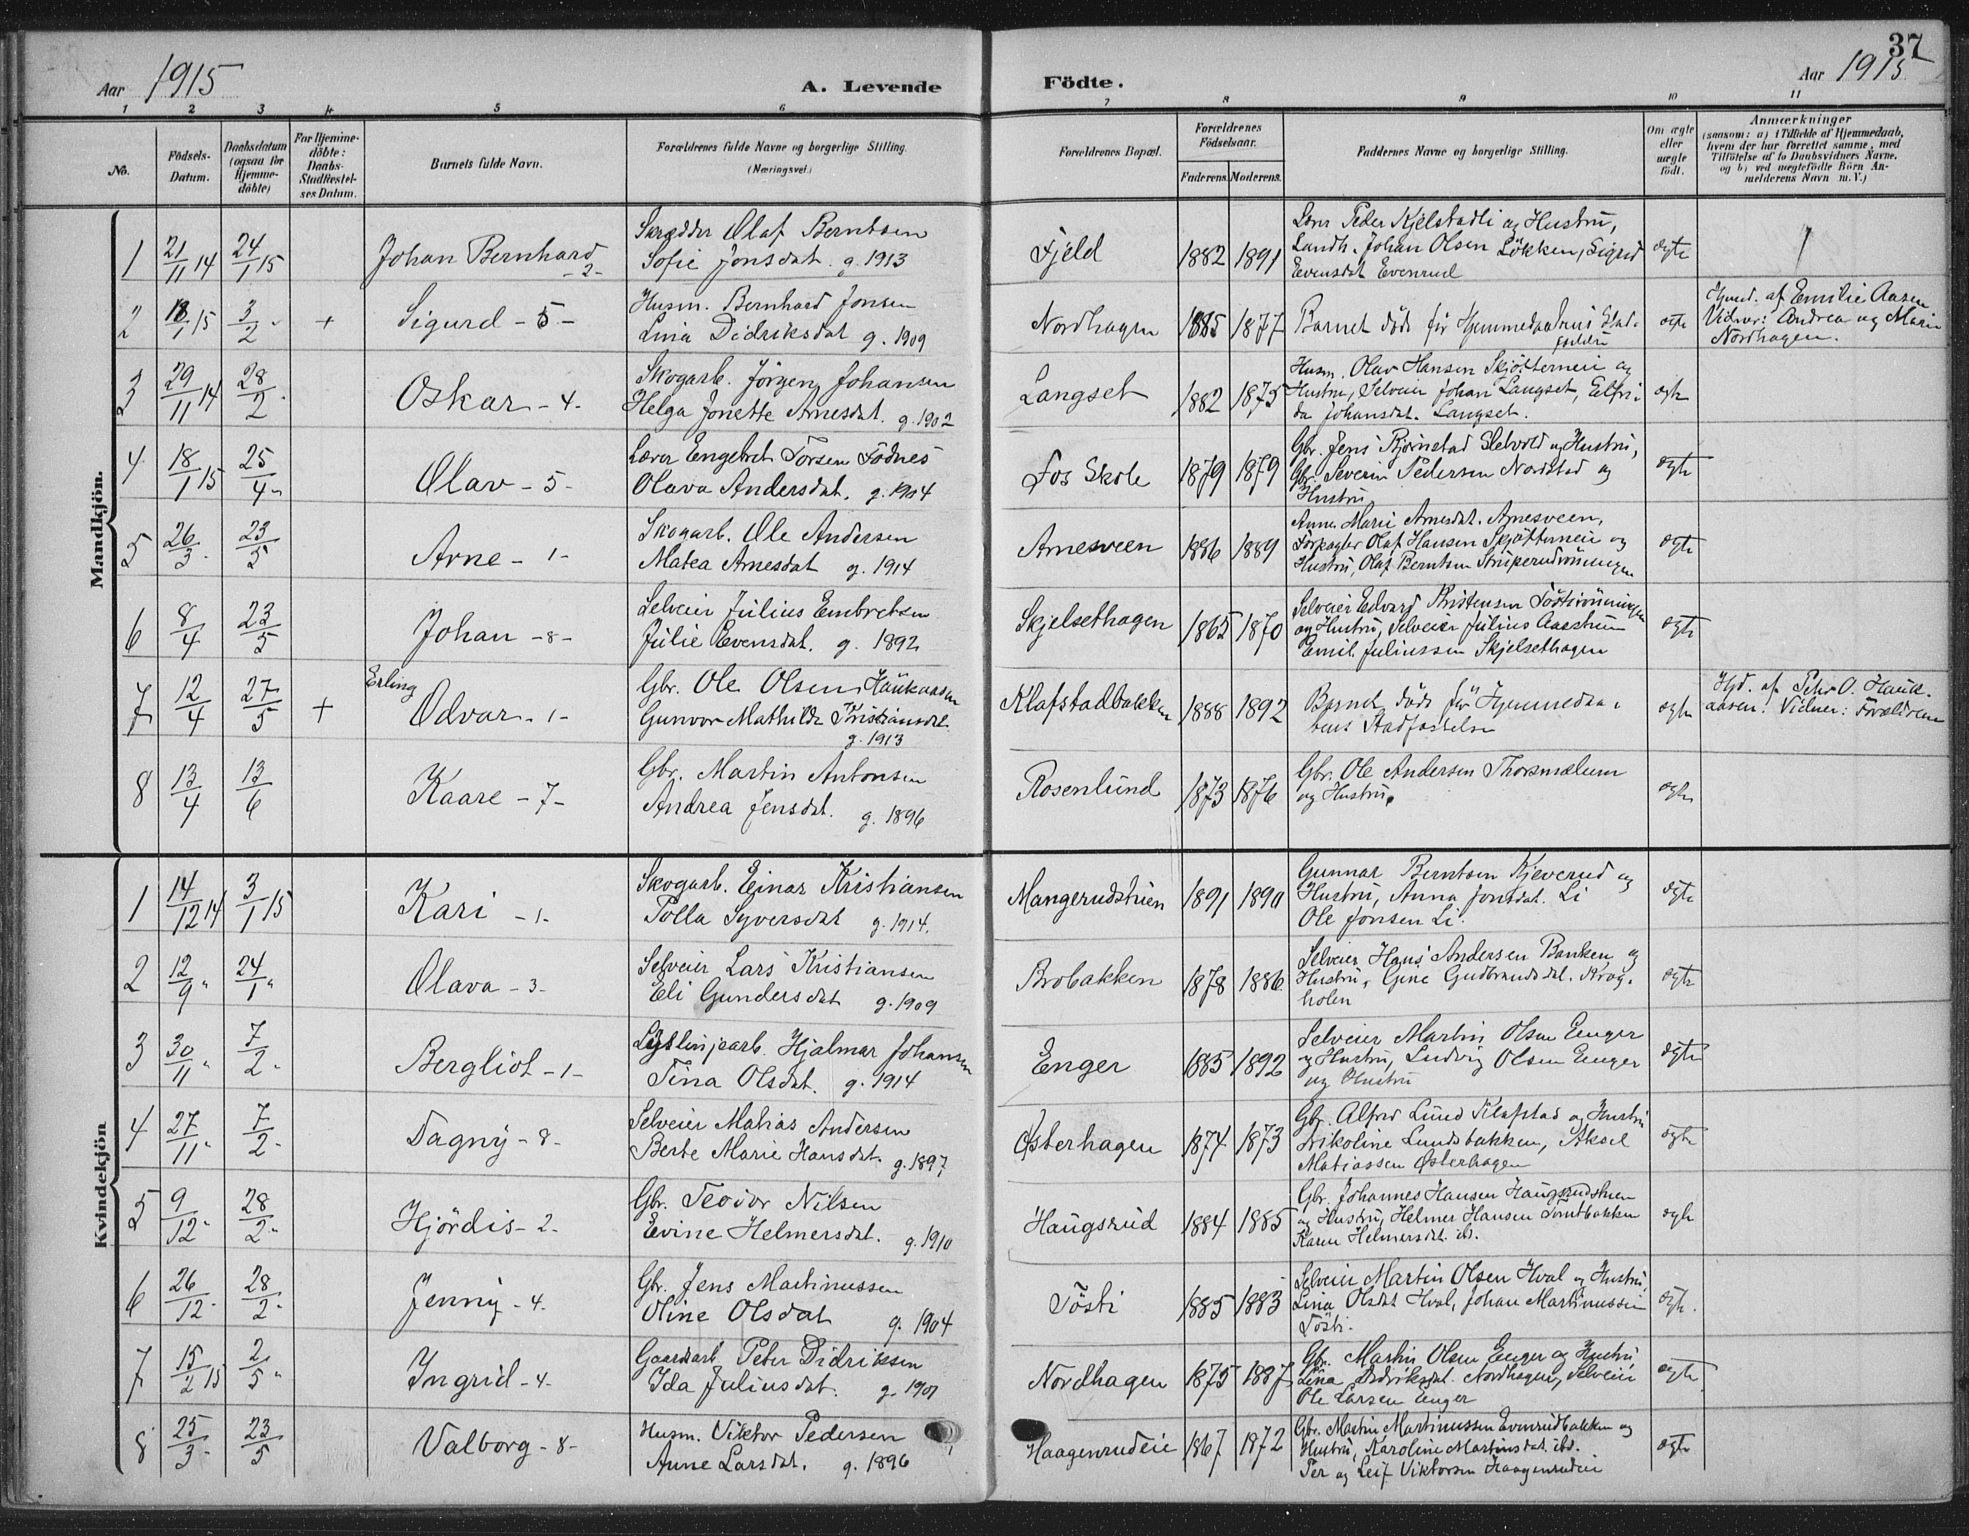 37
Aar 1915
A. Levende
Födte.
Aar 1915
1 2 3 4 5 6 7 8 9 10 11
No.
Födsels-
Datum.
Daabsdatum
(ogsaa for
Hjemme-
döbte)
For Hjemme-
döbte:
Daabs-
Stadfæstel-
ses Datum.
Barnets fulde Navn.
Forældrenes fulde Navne og borgerlige Stilling.
(Næringsvei.)
Forældrenes Bopæl.
Forældrenes
Födselsaar.
Faderens. Moderens.
Faddernes Navne og borgerlige Stilling.
Om ægte
eller
uægte
födt.
Anmærkninger
(saasom: a) i Tilfælde af Hjemmedaab,
hvem der har forrettet samme, med
Tilföielse af to Daabsvidners Navne,
og b) ved uægtefödte Börn An-
melderens Navn m. V.)
Mandkjön.
1 21/11 14 24/1 15 Johan Bernhard -2-
Skrædder Olaf Berntsen
Sofie Jonsdat. g. 1913
Fjeld 1882 1891
Lærer Peder Kjelstadli og Hustru,
Landh. Johan Olsen Lökken, Sigrid
Evensdat Evenrud
ægte
2 18/1 15 3/2 + Sigurd - 5 -
Husm. Bernhard Jonsen
Lina Didriksdat g. 1909
Nordhagen 1885 1877
Barnet döde för Hjemmedaabens Stad-
fæstelse
ægte
Hjmd. af Emilie Aasen
Vidner: Andrea og Marie
Nordhagen.
3 29/11 14 28/2 Oskar - 4 -
Skogarb. Jörgen Johansen
Helga Jonette Arnesdat. g. 1902
Langset 1882 1875
Husm. Olav Hansen Skjötterneie og
Hustru, Selveier Johan Langset, Elfri-
da Johansdat. Langset.
ægte
4 18/1 15 25/4 Olav - 5 -
Lærer Engebret Torsen Födnes
Olava Andersdat. g. 1904
Fos Skole 1879 1879
Gbr. Jens Björnstad Sletvold og Hustru,
Gbr. Severin Pedersen Nordstad og
Hustru
ægte
5 26/3 23/5 Arne - 1 -
Skogarb. Ole Andersen
Matea Arnesdat g. 1914
Arnesveen 1886 1889
Anne Marie Arnesdat. Arnesveen,
Forpagter Olaf Hansen Skjötterneie og
Hustru, Olaf Berntsen
ægte
6 8/4 23/5 Johan - 8 -
Selveier Julius Embretsen
Julie Evensdat. g. 1892
Skjelsethagen 1865 1870
Selveier Edvard Kristensen
og Hustru, Selveier Julius Aasstuen
Emil Juliussen Skjelsethagen
ægte
7 12/4 27/5 + Erling
Odvar - 1 -
Gbr. Ole Olsen Haukaasen
Gunvor Mathilde Kristiansdat.
g. 1913
Klafstadbakken 1888 1892
Barnet döde för Hjemmedaa-
bens Stadfæstelse
ægte
Hjd. af Pehr O. Hauk-
aasen. Vidner: Forældrene
8 13/4 13/6 Kaare - 7 -
Gbr. Martin Antonsen
Andrea Jensdat. g. 1896
Rosenlund 1873 1876
Gbr. Ole Andersen Thorsmælum
og Hustru.
ægte
Kvindekjön
1 14/12 14 3/1 15 Kari - 1 -
Skogarb. Einar Kristiansen
Polla Syversdat g. 1914.
Mangerudstuen 1891 1890
Gunnar Berntsen Kjeverud og
Hustru, Anna Jonsdat. Li
Ole Jonsen Li.
ægte
2 12/9 " 24/1 " Olava - 3 -
Selveier Lars Kristiansen
Eli Gundersdat g. 1909
Brobakken 1878 1886
Selveier Hans Andersen Banken og
Hustru, Gine Gudbrandsdat. Krog-
holen
ægte
3 30/11 " 7/2 Bergliot - 1 -
Lyslinjearb. Hjalmar Johansen
Tina Olsdat. g. 1914
Enger 1885 1892
Selveier Martin Olsen Enger
og Hustru, Ludvig Olsen Enger
og Hustru
ægte
4 27/11 " 7/2 Dagny - 8 -
Selveier Matias Andersen
Berte Marie Hansdat. g. 1897
Østerhagen 1874 1873
Gbr. Alfred Lund Klafstad og Hustru
Nikoline Lundsbakken, Aksel
Matiassen Østerhagen
ægte
5 9/12 " 28/2 Hjördis - 2 -
Gbr. Teodor Nilsen
Evine Helmersdat. g. 1910
Haugsrud 1884 1885
Gbr. Johannes Hansen Haugsrudstuen
og Hustru, Helmer Hansen Tomtbakken
Karen Helmersdat. ibd.
ægte
6 26/12 28/2 Jenny - 4 -
Gbr. Jens Martinussen
Oline Olsdat g. 1904
Tösti 1885 1883
Selveier Martin Olsen Hval og Hustru
Lina Olsdat Hval, Johan Martinussen
Tösti.
ægte
7 15/2 15 2/5 Ingrid - 4 -
Gaardarb. Peter Didriksen
Ida Juliusdat. g. 1907
Nordhagen 1875 1887
Gbr. Martin Olsen Enger og Hustru
Lina Didriksdat. Nordhagen, Selveier
Ole Larsen Enger
ægte
8 25/3 23/5 Valborg - 8 -
Husm. Viktor Pedersen
Anne Larsdat. g. 1896
Haagenrudeie 1867 1872
Gbr. Martin Martinussen Evenrudbakken og
Hustru, Karoline Martinsdat. ibd.
Per og Leif Viktorsen Haagenrudeie
ægte